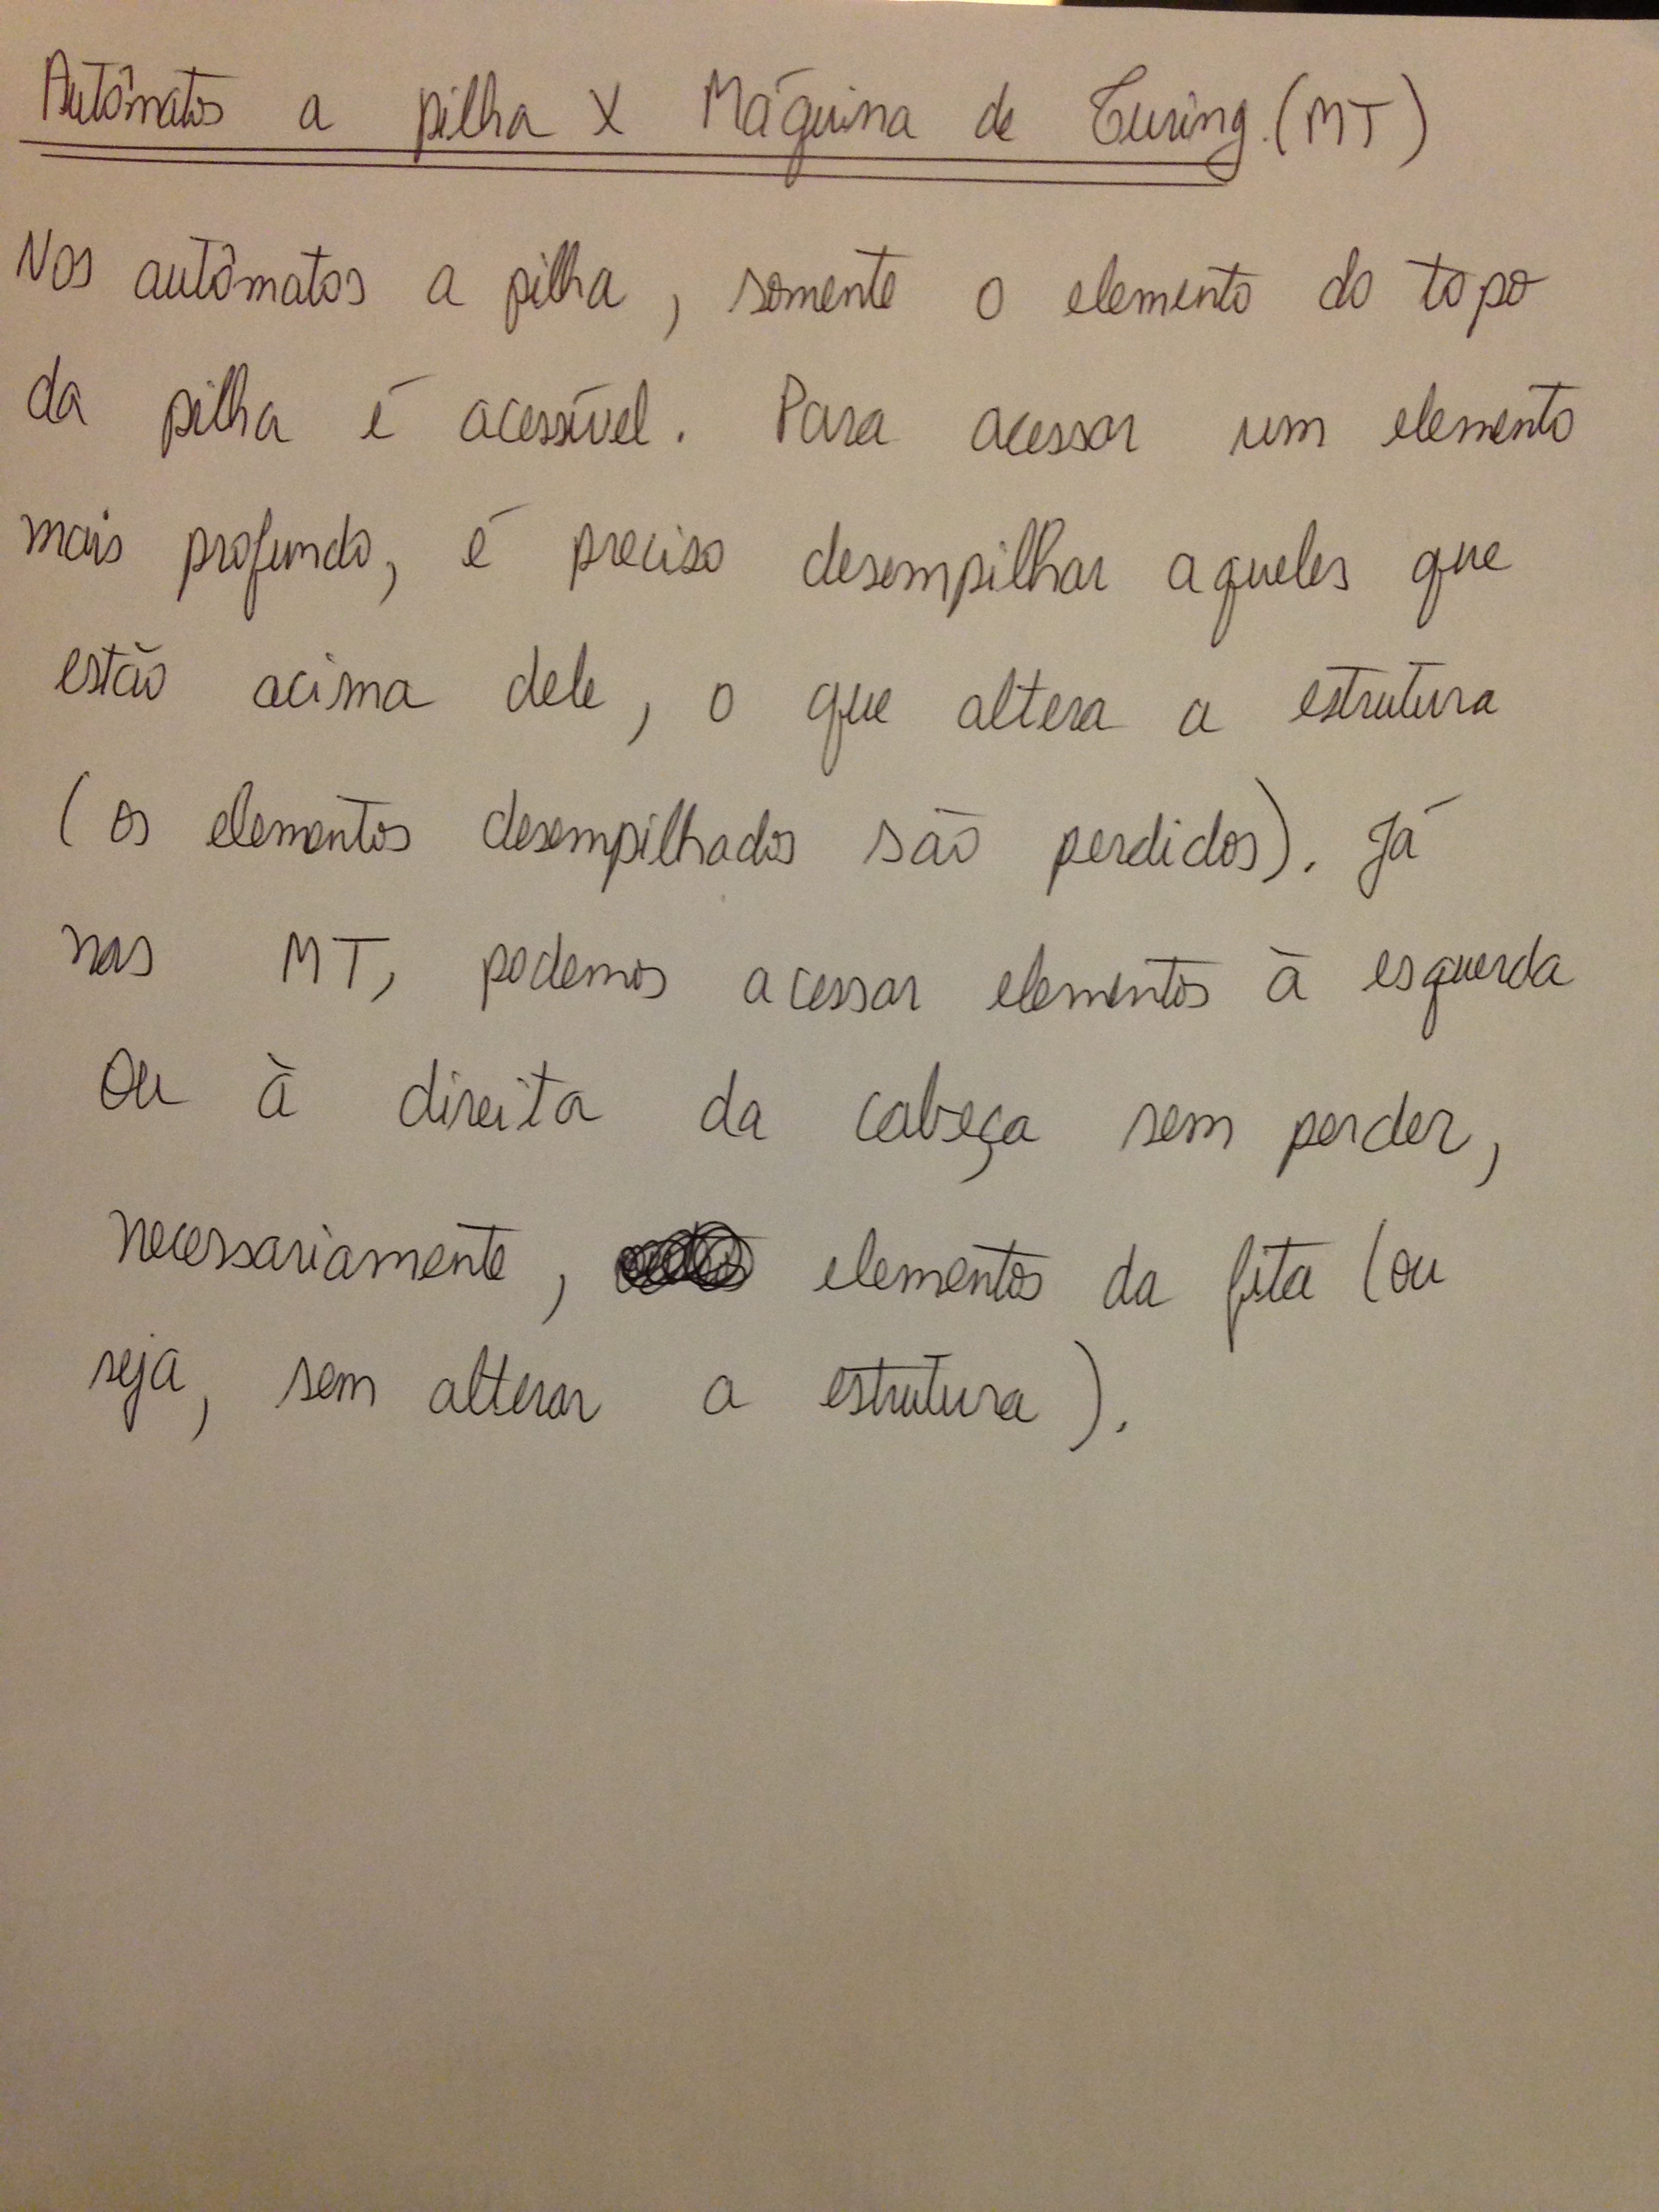 Autômatos a pilha X Máquina de Turing (MT)
Nos autômatos a pilha, somente o elemento do topo
da pilha é acessível. Para acessar um elemento
mais profundo, é preciso desempilhar aqueles que
estão acima dele, o que altera a estrutura
(os elementos desempilhados são perdidos). Já
nas MT, podemos acessar elementos à esquerda
ou à direita da cabeça sem perder,
necessariamente, elementos da fita (ou
seja, sem alterar a estrutura).